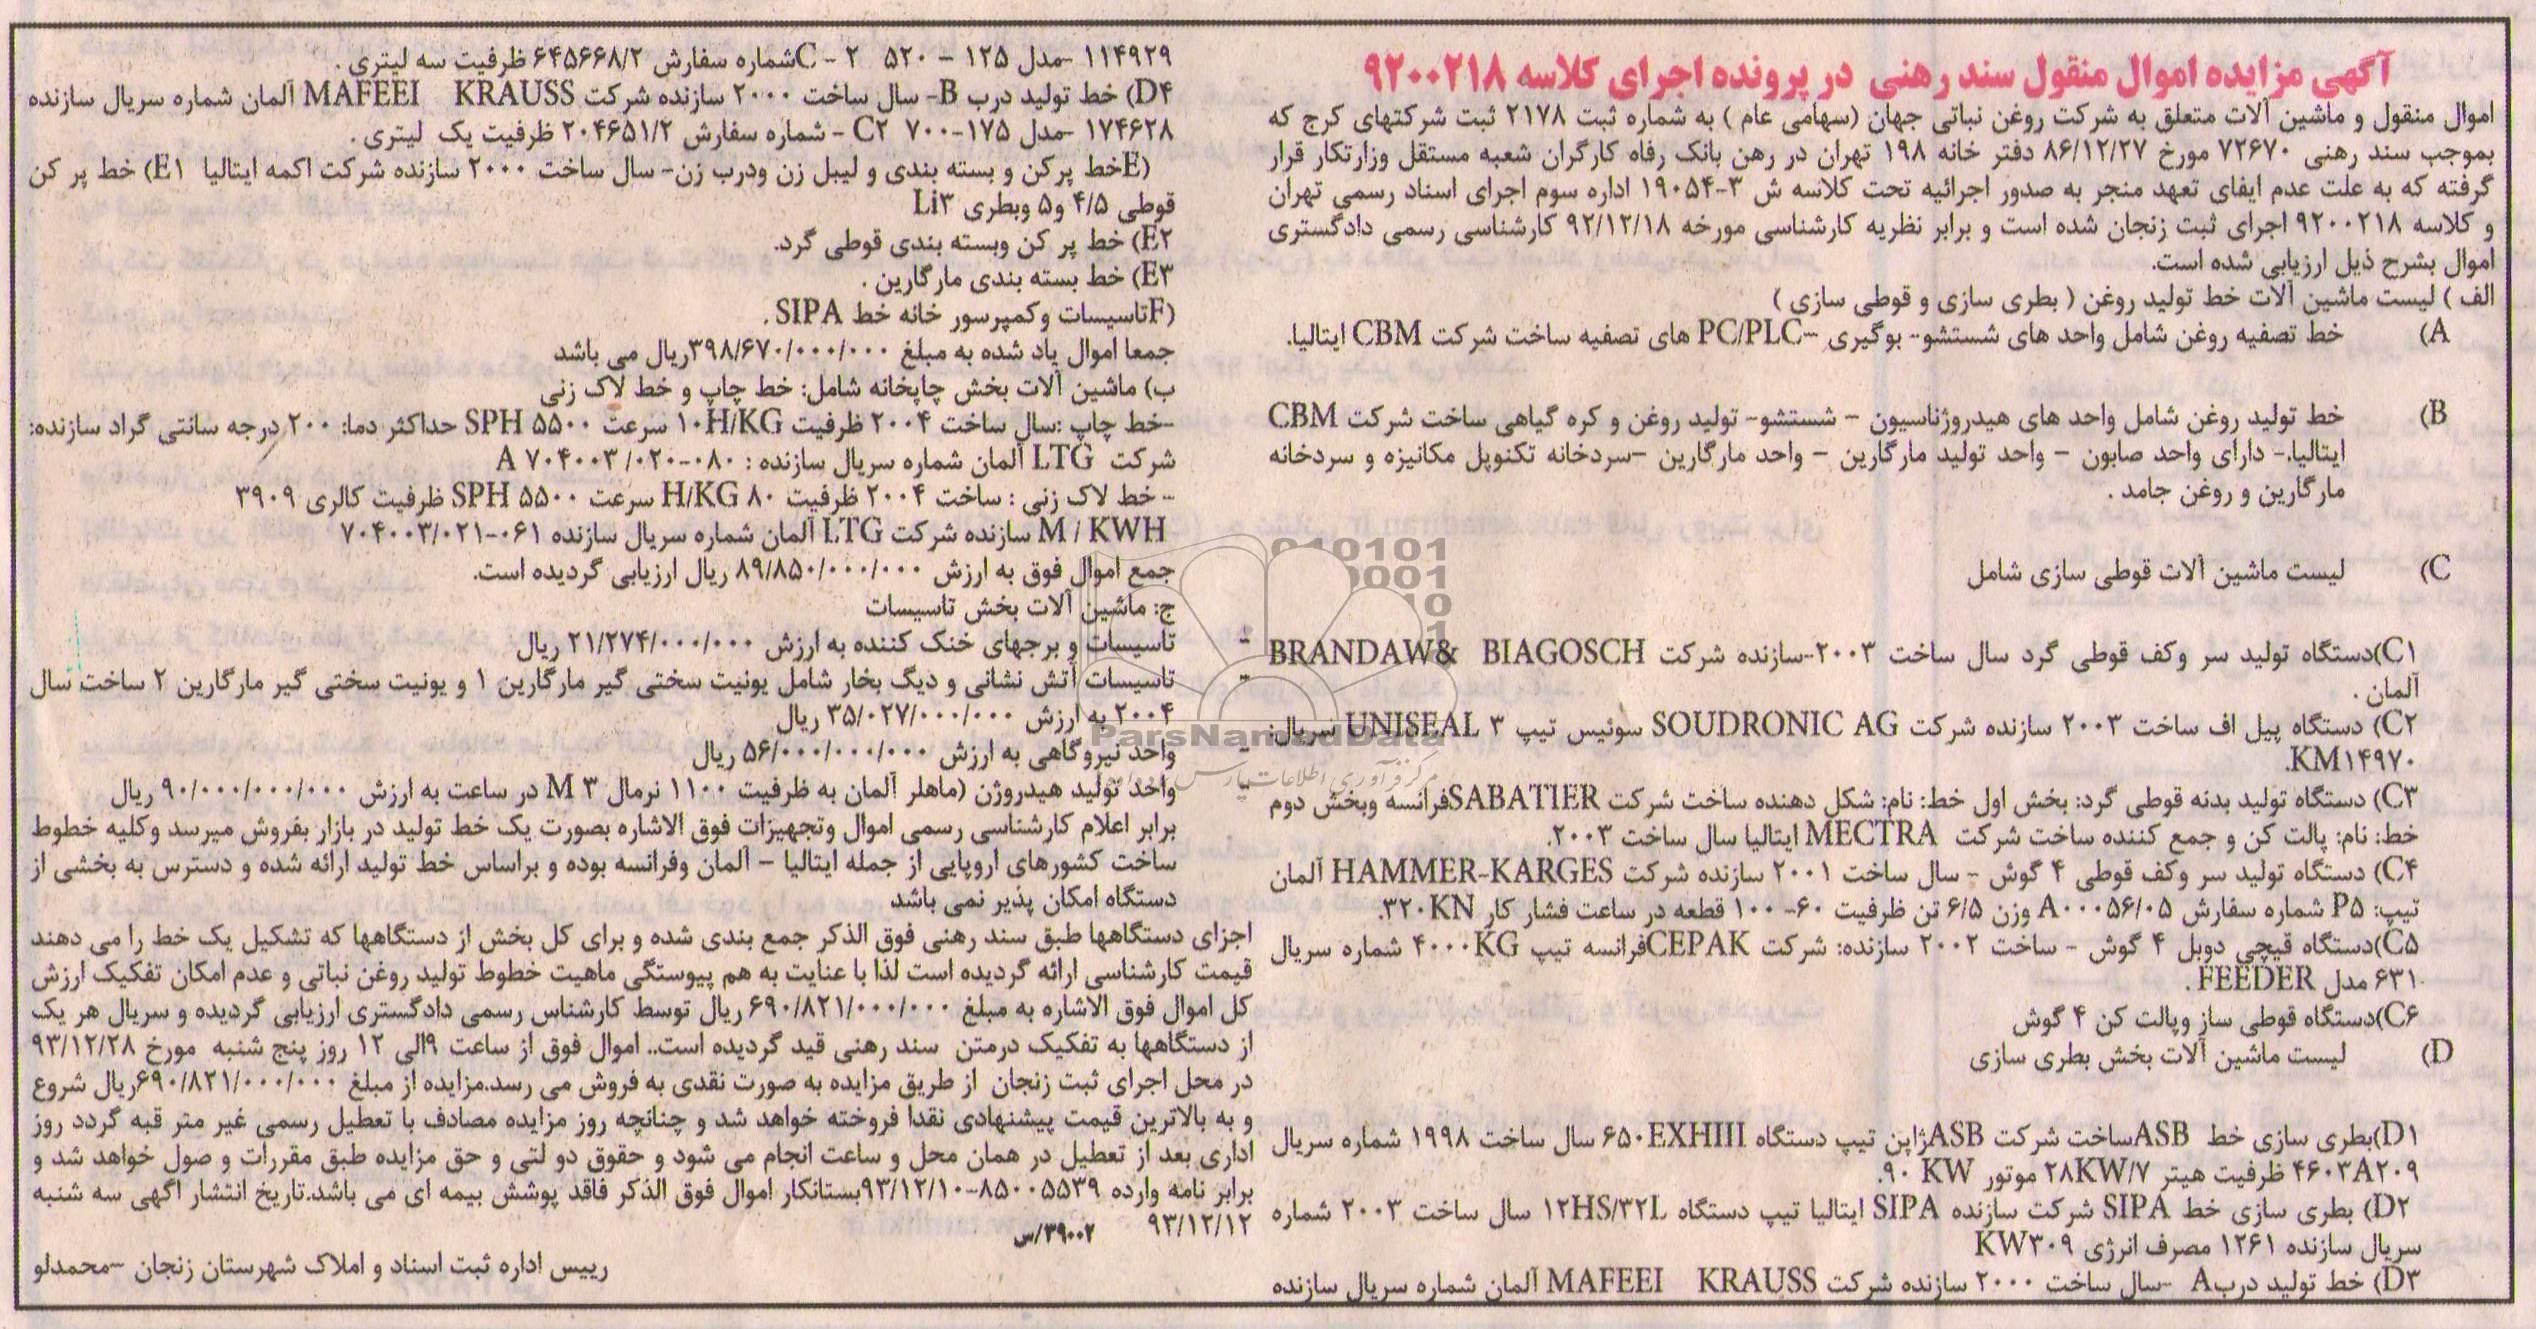 آگهی مزایده اموال منقول سند رهنی در پرونده اجرای کلاسه ۹۲۰۰۲۱۸
اموال منقول و ماشین آلات متعلق به شرکت روغن نباتی جهان (سهامی عام ) به شماره ثبت ۲۱۷۸ ثبت شرکتهای کرج که
بموجب سند رهنی ۷۲۶۷۰ مورخ ۸۶/۱۲/۲۷ دفتر خانه ۱۹۸ تهران در رهن بانک رفاه کارگران شعبه مستقل وزارتکار قرار
گرفته که به علت عدم ایفای تعهد منجر به صدور اجرائیه تحت کلاسه ش ۳-۱۹۰۵۴ اداره سوم اجرای اسناد رسمی تهران
و کلاسه ۹۲۰۰۲۱۸ اجرای ثبت زنجان شده است و برابر نظریه کارشناسی مورخه ۹۲/۱۲/۱۸ کارشناسی رسمی دادگستری
اموال بشرح ذیل ارزیابی شده است.
الف ) لیست ماشین آلات خط تولید روغن ( بطری سازی و قوطی سازی )
A) خط تصفیه روغن شامل واحد های شستشو- بوگیری –PC/PLC های تصفیه ساخت شرکت CBM ایتالیا.
B) خط تولید روغن شامل واحد های هیدروژناسیون – شستشو- تولید روغن و کره گیاهی ساخت شرکت CBM
ایتالیا.- دارای واحد صابون – واحد تولید مارگارین – واحد مارگارین –سردخانه تکنوپل مکانیزه و سردخانه
مارگارین و روغن جامد .
C) لیست ماشین آلات قوطی سازی شامل
C۱)دستگاه تولید سر وکف قوطی گرد سال ساخت ۲۰۰۳-سازنده شرکت BRANDAW& BIAGOSCH
آلمان .
C۲) دستگاه پیل اف ساخت ۲۰۰۳ سازنده شرکت SOUDRONIC AG سوئیس تیپ UNISEAL ۳ سریال:
KM۱۴۹۷۰.
C۳) دستگاه تولید بدنه قوطی گرد: بخش اول خط: نام: شکل دهنده ساخت شرکت SABATIERفرانسه وبخش دوم
خط: نام: پالت کن و جمع کننده ساخت شرکت MECTRA ایتالیا سال ساخت ۲۰۰۳.
C۴) دستگاه تولید سر وکف قوطی ۴ گوش – سال ساخت ۲۰۰۱ سازنده شرکت HAMMER-KARGES آلمان
تیپ: P۵ شماره سفارش A۰۰۰۵۶/۰۵ وزن ۶/۵ تن ظرفیت ۶۰- ۱۰۰ قطعه در ساعت فشار کار ۳۲۰KN.
C۵)دستگاه قیچی دوبل ۴ گوش – ساخت ۲۰۰۲ سازنده: شرکت CEPAKفرانسه تیپ ۴۰۰۰KG شماره سریال
۶۳۱ مدل FEEDER .
C۶)دستگاه قوطی ساز وپالت کن ۴ گوش
D) لیست ماشین آلات بخش بطری سازی
D۱)بطری سازی خط ASBساخت شرکت ASBژاپن تیپ دستگاه ۶۵۰EXHIII سال ساخت ۱۹۹۸ شماره سریال
۴۶۰۳A۲۰۹ ظرفیت هیتر ۲۸KW/۷ موتور ۹۰ KW.
D۲) بطری سازی خط SIPA شرکت سازنده SIPA ایتالیا تیپ دستگاه ۱۲HS/۳۲L سال ساخت ۲۰۰۳ شماره
سریال سازنده ۱۲۶۱ مصرف انرژی KW۳۰۹
D۳) خط تولید دربA -سال ساخت ۲۰۰۰ سازنده شرکت MAFEEI KRAUSS آلمان شماره سریال سازنده
۱۱۴۹۲۹ -مدل ۱۲۵ – ۵۲۰ C – ۲شماره سفارش ۶۴۵۶۶۸/۲ ظرفیت سه لیتری .
D۴) خط تولید درب B- سال ساخت ۲۰۰۰ سازنده شرکت MAFEEI KRAUSS آلمان شماره سریال سازنده
۱۷۴۶۲۸ -مدل ۱۷۵-۷۰۰ C۲ – شماره سفارش ۲۰۴۶۵۱/۲ ظرفیت یک لیتری .
E)خط پرکن و بسته بندی و لیبل زن ودرب زن- سال ساخت ۲۰۰۰ سازنده شرکت اکمه ایتالیا E۱) خط پر کن
قوطی ۴/۵ و۵ وبطری Li۳
E۲) خط پر کن وبسته بندی قوطی گرد.
E۳) خط بسته بندی مارگارین .
F)تاسیسات وکمپرسور خانه خط SIPA .
جمعا اموال یاد شده به مبلغ ۳۹۸/۶۷۰/۰۰۰/۰۰۰ریال می باشد
ب) ماشین آلات بخش چاپخانه شامل: خط چاپ و خط لاک زنی
-خط چاپ :سال ساخت ۲۰۰۴ ظرفیت ۱۰H/KG سرعت ۵۵۰۰ SPH حداکثر دما: ۲۰۰ درجه سانتی گراد سازنده:
شرکت LTG آلمان شماره سریال سازنده : ۰۸۰-۰۲۰/ ۷۰۴۰۰۳ A
- خط لاک زنی : ساخت ۲۰۰۴ ظرفیت ۸۰ H/KG سرعت ۵۵۰۰ SPH ظرفیت کالری ۳۹۰۹
M / KWH سازنده شرکت LTG آلمان شماره سریال سازنده ۰۶۱-۷۰۴۰۰۳/۰۲۱
جمع اموال فوق به ارزش ۸۹/۸۵۰/۰۰۰/۰۰۰ ریال ارزیابی گردیده است.
ج: ماشین آلات بخش تاسیسات
- تاسیسات و برجهای خنک کننده به ارزش ۲۱/۲۷۴/۰۰۰/۰۰۰ ریال
- تاسیسات آتش نشانی و دیگ بخار شامل یونیت سختی گیر مارگارین ۱ و یونیت سختی گیر مارگارین ۲ ساخت سال
۲۰۰۴ به ارزش ۳۵/۰۲۷/۰۰۰/۰۰۰ ریال
- واحد نیروگاهی به ارزش ۵۶/۰۰۰/۰۰۰/۰۰۰ ریال
- واحد تولید هیدروژن (ماهلر آلمان به ظرفیت ۱۱۰۰ نرمال M ۳ در ساعت به ارزش ۹۰/۰۰۰/۰۰۰/۰۰۰ ریال
برابر اعلام کارشناسی رسمی اموال وتجهیزات فوق الاشاره بصورت یک خط تولید در بازار بفروش میرسد وکلیه خطوط
ساخت کشورهای اروپایی از جمله ایتالیا – آلمان وفرانسه بوده و براساس خط تولید ارائه شده و دسترس به بخشی از
دستگاه امکان پذیر نمی باشد
اجزای دستگاهها طبق سند رهنی فوق الذکر جمع بندی شده و برای کل بخش از دستگاهها که تشکیل یک خط را می دهند
قیمت کارشناسی ارائه گردیده است لذا با عنایت به هم پیوستگی ماهیت خطوط تولید روغن نباتی و عدم امکان تفکیک ارزش
کل اموال فوق الاشاره به مبلغ ۶۹۰/۸۲۱/۰۰۰/۰۰۰ ریال توسط کارشناس رسمی دادگستری ارزیابی گردیده و سریال هر یک
از دستگاهها به تفکیک درمتن سند رهنی قید گردیده است.. اموال فوق از ساعت ۹الی ۱۲ روز پنج شنبه مورخ ۹۳/۱۲/۲۸
در محل اجرای ثبت زنجان از طریق مزایده به صورت نقدی به فروش می رسد.مزایده از مبلغ ۶۹۰/۸۲۱/۰۰۰/۰۰۰ریال شروع
و به بالاترین قیمت پیشنهادی نقدا فروخته خواهد شد و چنانچه روز مزایده مصادف با تعطیل رسمی غیر متر قبه گردد روز
اداری بعد از تعطیل در همان محل و ساعت انجام می شود و حقوق دو لتی و حق مزایده طبق مقررات و صول خواهد شد و
برابر نامه وارده ۸۵۰۰۵۵۳۹-۹۳/۱۲/۱۰بستانکار اموال فوق الذکر فاقد پوشش بیمه ای می باشد.تاریخ انتشار اگهی سه شنبه
۹۳/۱۲/۱۲
۳۹۰۰۲/س
رییس اداره ثبت اسناد و املاک شهرستان زنجان –محمدلو
ParsNamadData
مرکز فرآوری اطلاعات پارس